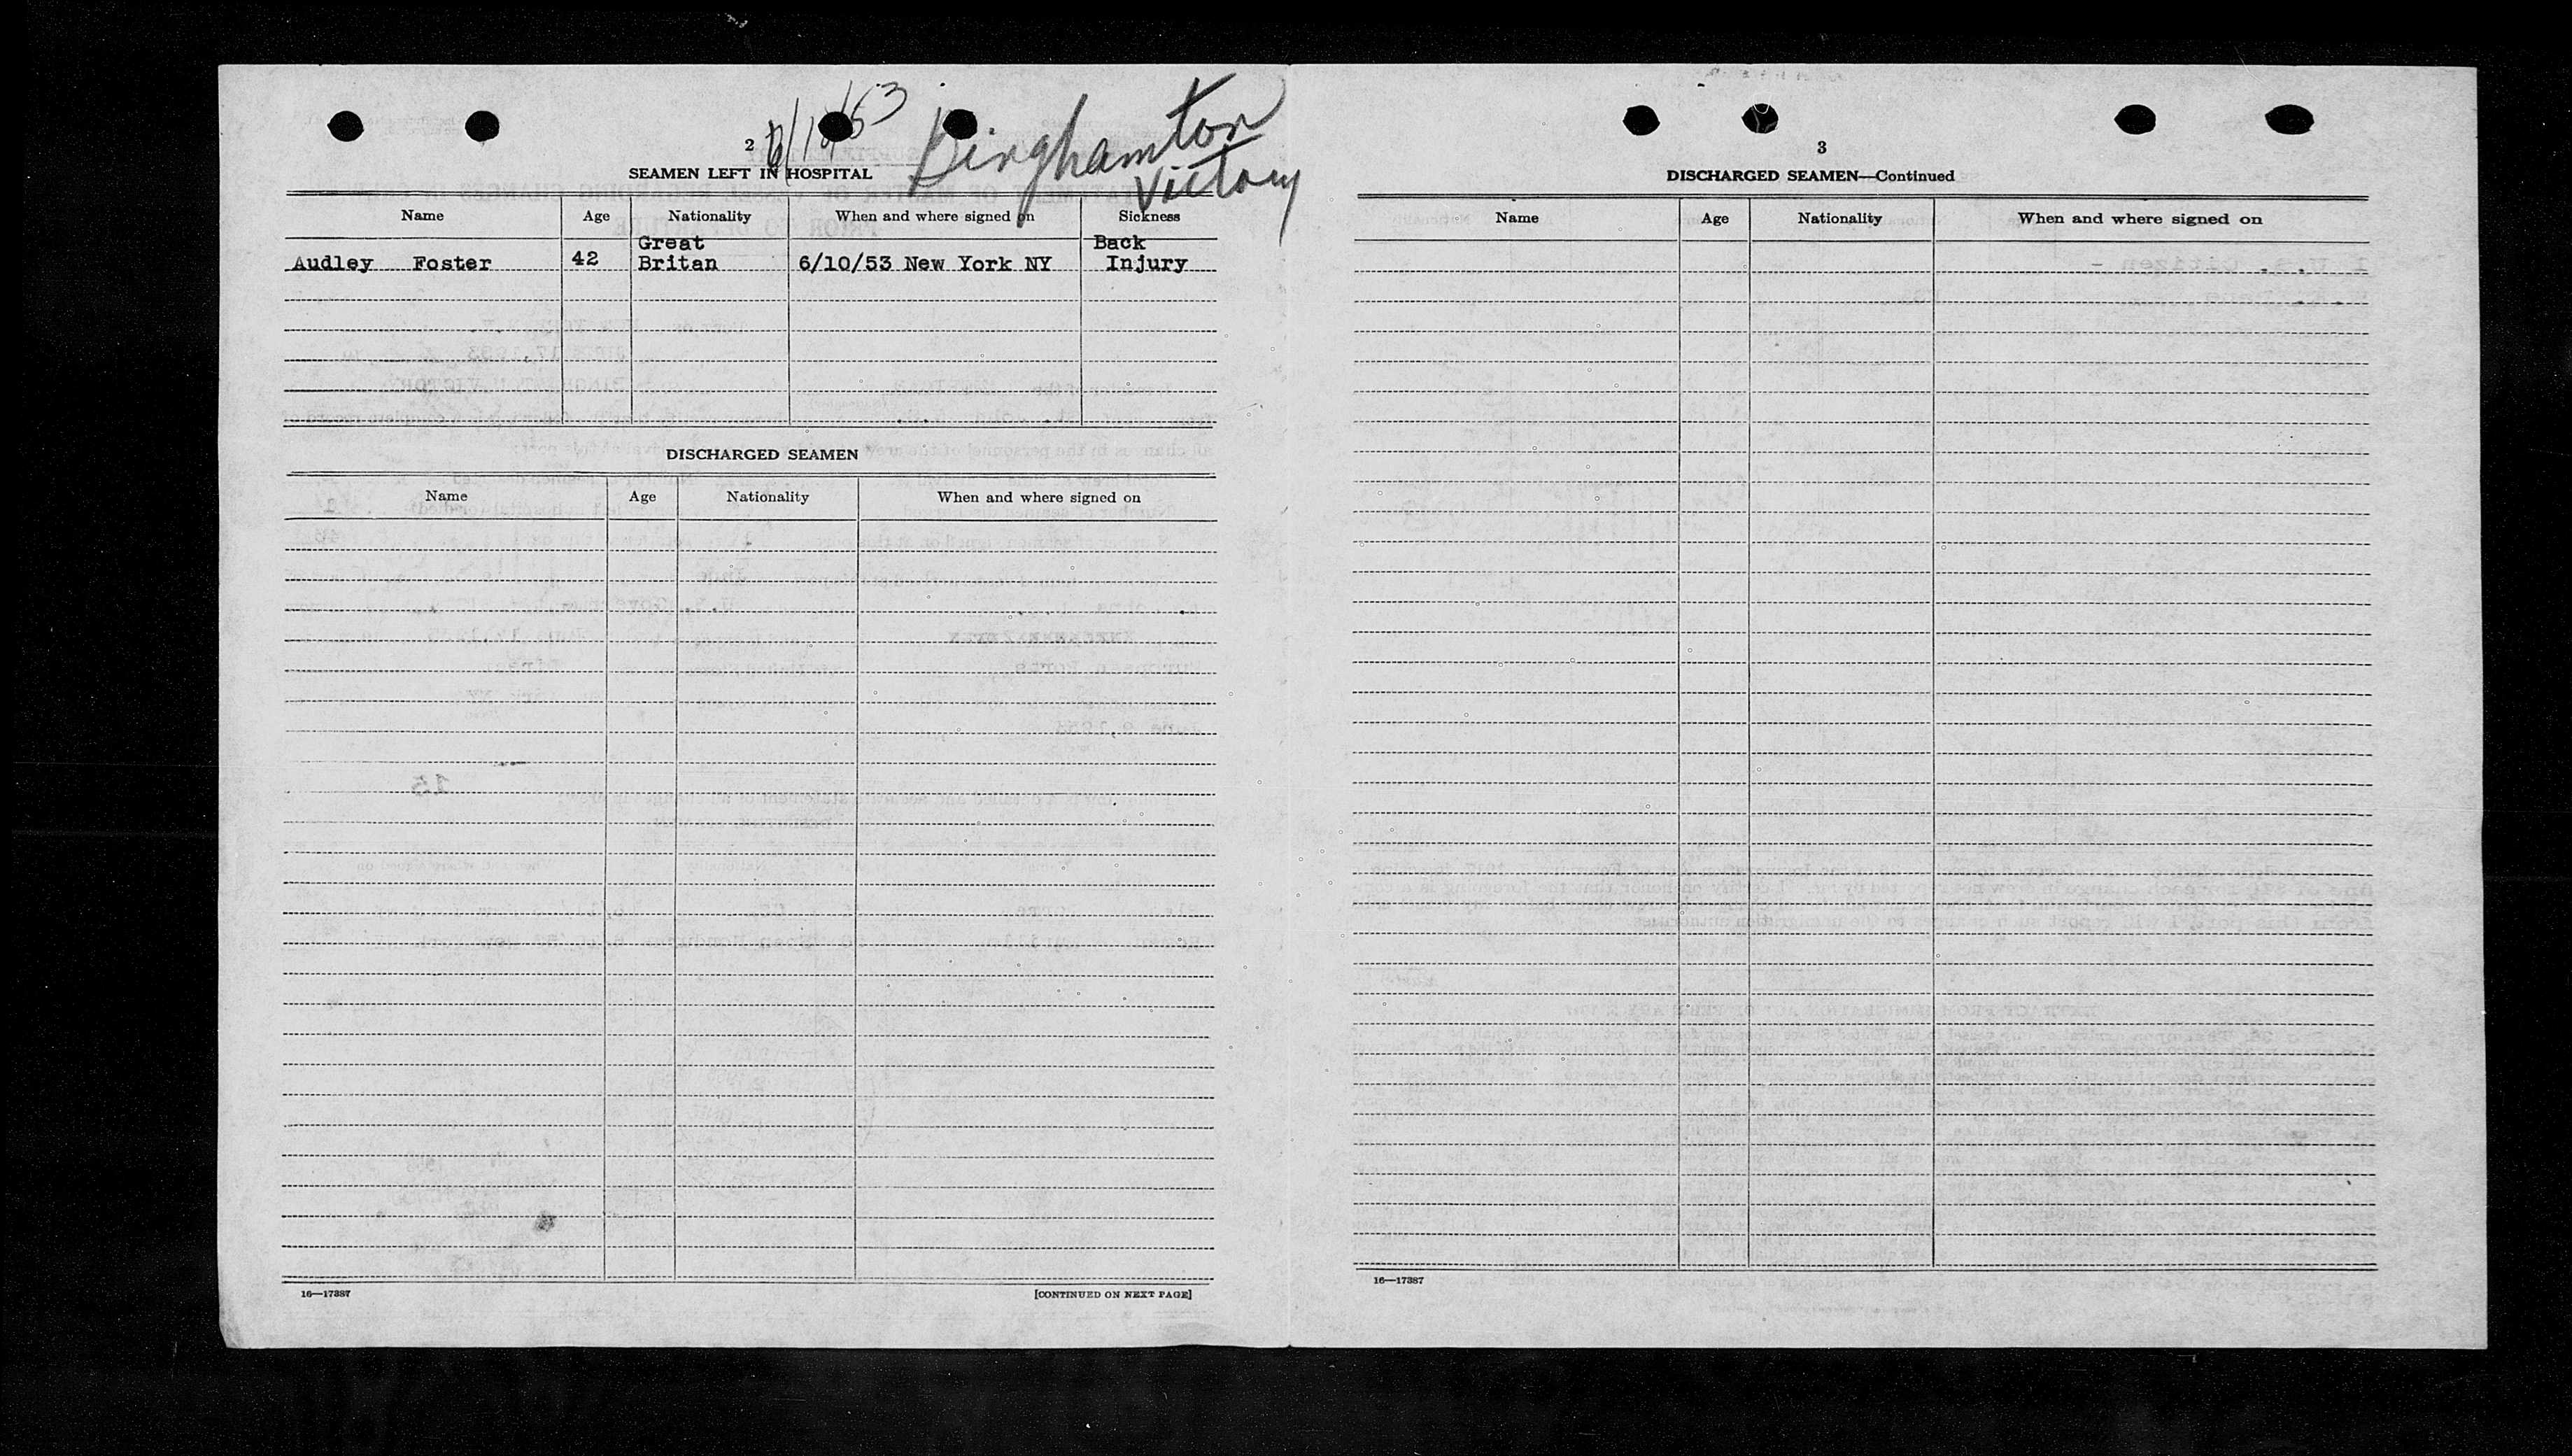 2
Binghamton
Victory
SEAMEN LEFT IN HOSPITAL
Name Age Nationality When and where signed on Sickness
Audley Foster 42 Great Britan 6/10/53 New York NY Back Injury
DISCHARGED SEAMEN
Name Age Nationality When and where signed on
16—17387
[CONTINUED ON NEXT PAGE]
3
DISCHARGED SEAMEN—Continued
Name Age Nationality When and where signed on
16—17387